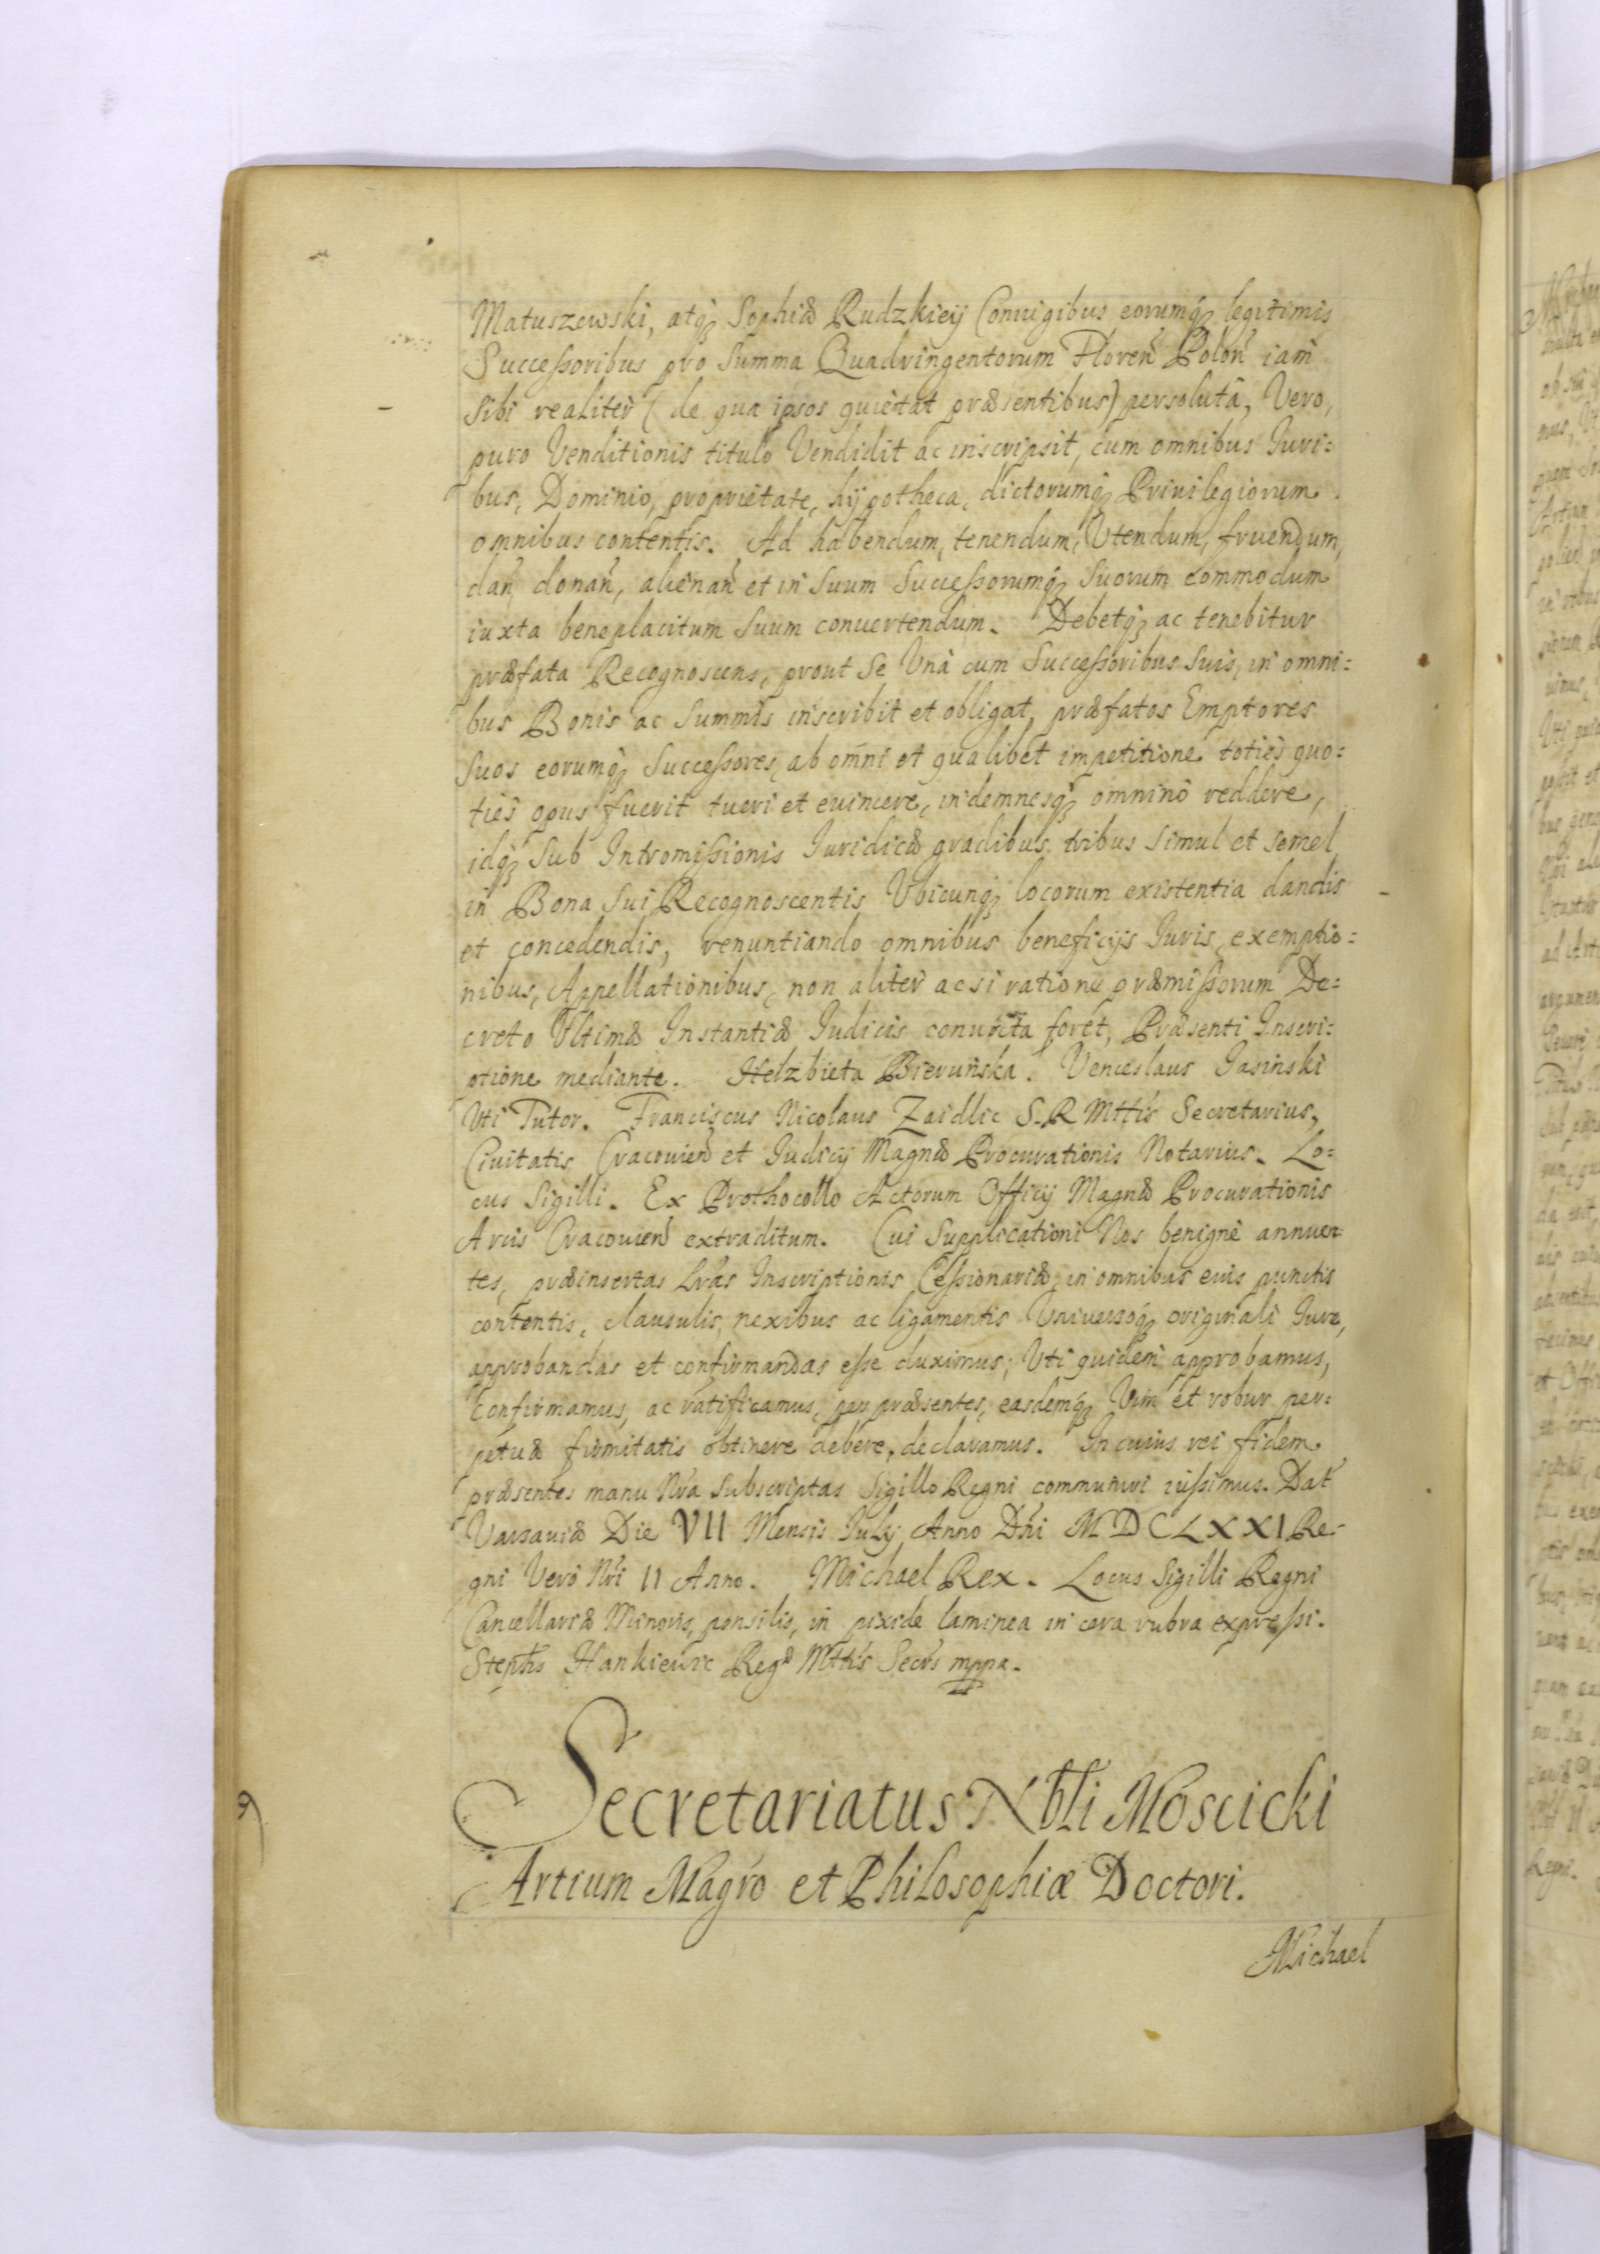 Matuszewski, atq̃ Sophiæ Rudzkiey Coniugibus eorumq̃ legitimis
Successoribus pro Summa Quadringentorum Floreñ Poloñ iam
sibi realiter (de qua ipsos quietat præsentibus) persolutâ, Vero,
puro Venditionis titulo Vendidit ac inscripsit, cum omnibus Iuri=
bus, Dominio, proprietate, hypotheca, dictorumq̃ Privilegiorum
omnibus contentis. Ad habendum, tenendum, Utendum, fruendum,
dañ, donañ, alienañ et in suum Successorumq̃ suorum commodum
iuxta beneplacitum suum convertendum. Debetq̃ ac tenebitur
præfata Recognoscens, prout se Unà cum Successoribus suis, in omni=
bus Bonis ac Summis inscribit et obligat, præfatos Emptores
suos eorumq̃ Successores, ab omni et qualibet impetitione toties quo=
ties opus fuerit tueri et evincere, indemnesq̃ omninò reddere,
idq̃ sub Intromissionis Iuridicæ gradibus tribus simul et semel
in Bona sui Recognoscentis Ubicunq̃ locorum existentia dandis
et concedendis, renuntiando omnibus beneficijs Iuris, exemptio=
nibus, Appellationibus, non aliter ac si ratione præmissorum De=
creto Ultimæ Instantiæ Iudicis convicta foret, Præsenti Inscri=
ptione mediante. Helzbieta Bieruńska. Venceslaus Jasinski
Uti Tutor. Franciscus Nicolaus Zaidlic S. R. Mttis Secretarius,
Civitatis Cracovień et Iudicij Magnæ Procurationis Notarius. Lo=
cus Sigilli. Ex Prothocollo Actorum Officij Magnæ Procurationis
Arcis Cracovień extraditum. Cui Supplicationi Nos benignè annuen
tes, præinsertas Lrãs Inscriptionis Cessionariæ, in omnibus euis punctis
contentis, clausulis, nexibus ac ligamentis Universoq̃ originali Iure,
approbandas et confirmandas esse duximus; Uti quidem approbamus,
confirmamus, ac ratificamus, per præsentes, easdemq̃ Vim et robur per=
petuæ firmitatis obtinere debere, declaramus. In cuius rei ffidem
præsentes manu Nrã subscriptas Sigillo Regni communiri iussimus. Dat
Varsaviæ Die VII Mensis July Anno Dñi MDCLXXI Re=
gni Verò Nri II Anno. Michael Rex. Locus Sigilli Regni
Cancellariæ Minoris, pensilis, in pixide laminea in cera rubra expressi.
Stephs Hankiewic Regæ Mttis Secrs mppa.
Secretariatus Nbli Moscicki
Artium Magro et Philosophiæ Doctori.
Michael